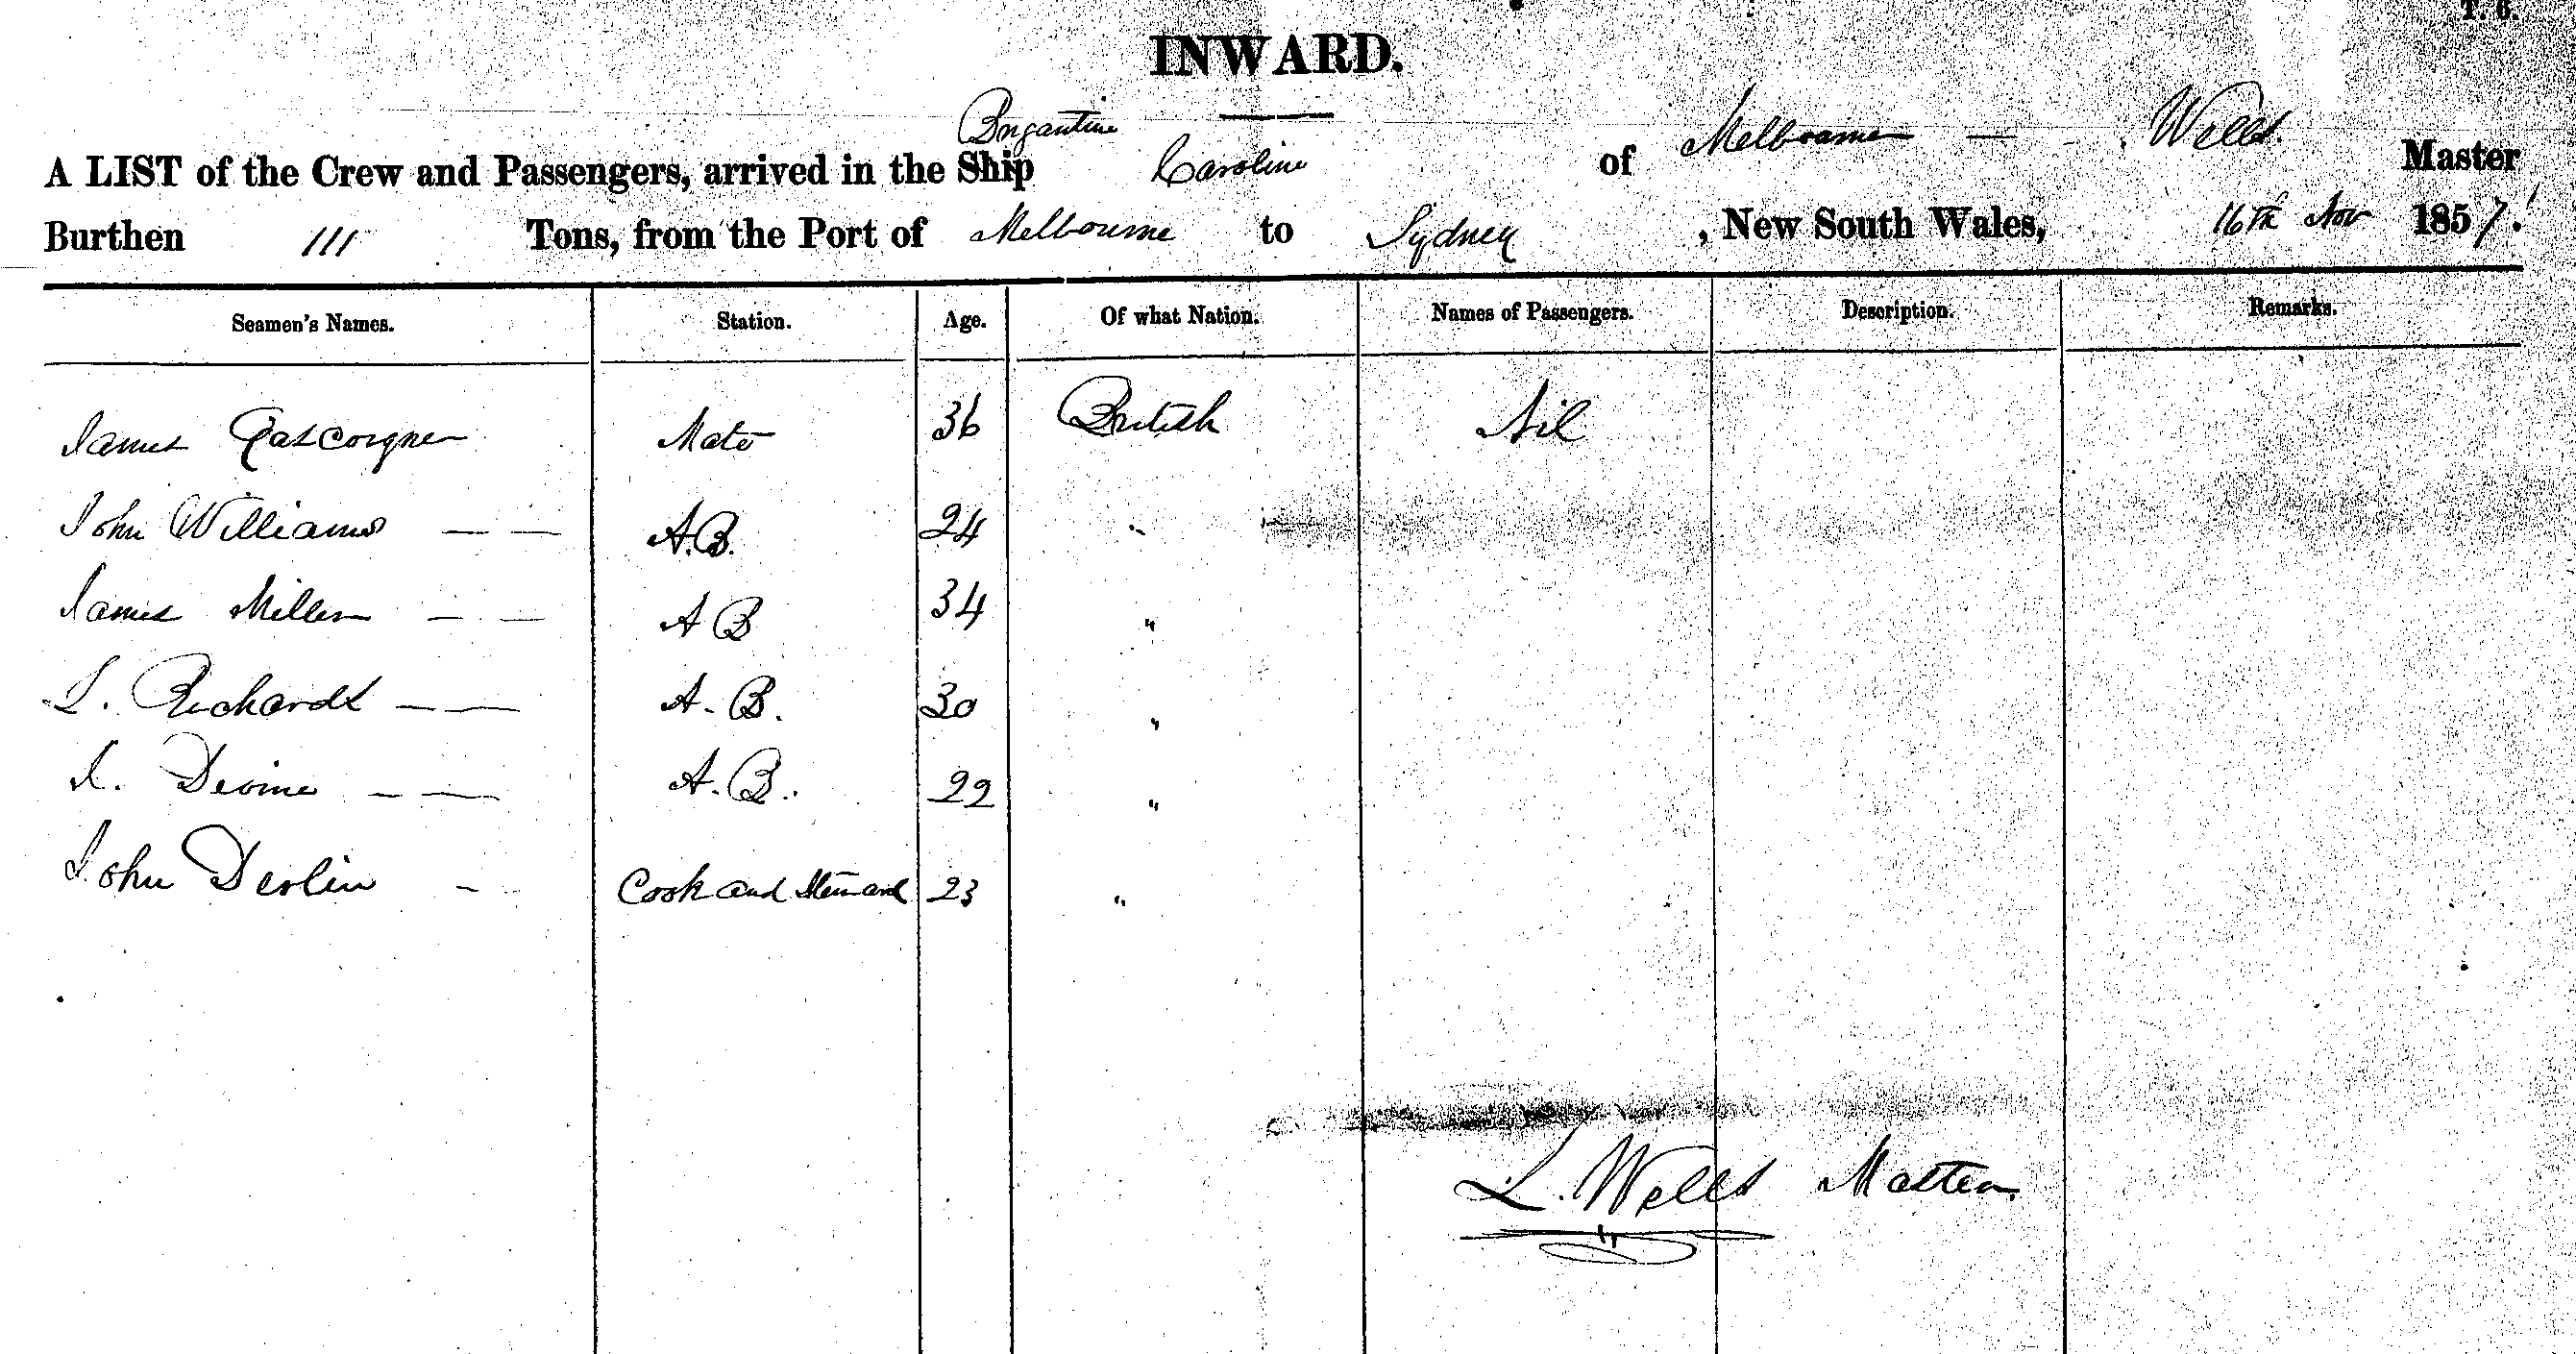 T. 6.
INWARD.
Brigantine
A LIST of the Crew and Passengers, arrived in the Ship Caroline of Melbourne — Wells Master
Burthen 111 Tons, from the Port of Melbourne to Sydney, New South Wales, 16th Nov 1857.
Seamen's Names. Station. Age. Of what Nation. Names of Passengers. Description. Remarks.
James Gascoigne Mate 36 British Nil
John Williams — — A.B. 24 "
James Miller — — A B 34 "
L. Richards — — A. B. 30 "
J. Devine — — A. B. 22 "
John Devlin — Cook and Steward 23 "
L. Wells Master